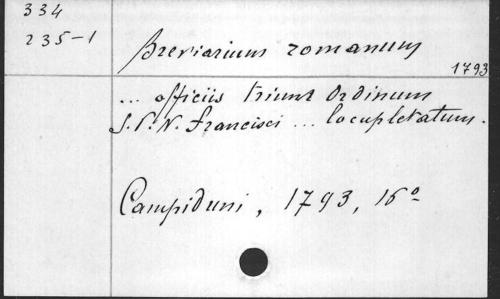 334
235-1
Breviarium romanum
1793
... officiis trium Ordinum
S.P.N. Francisci ... locupletatum.
Campiduni, 1793, 16°